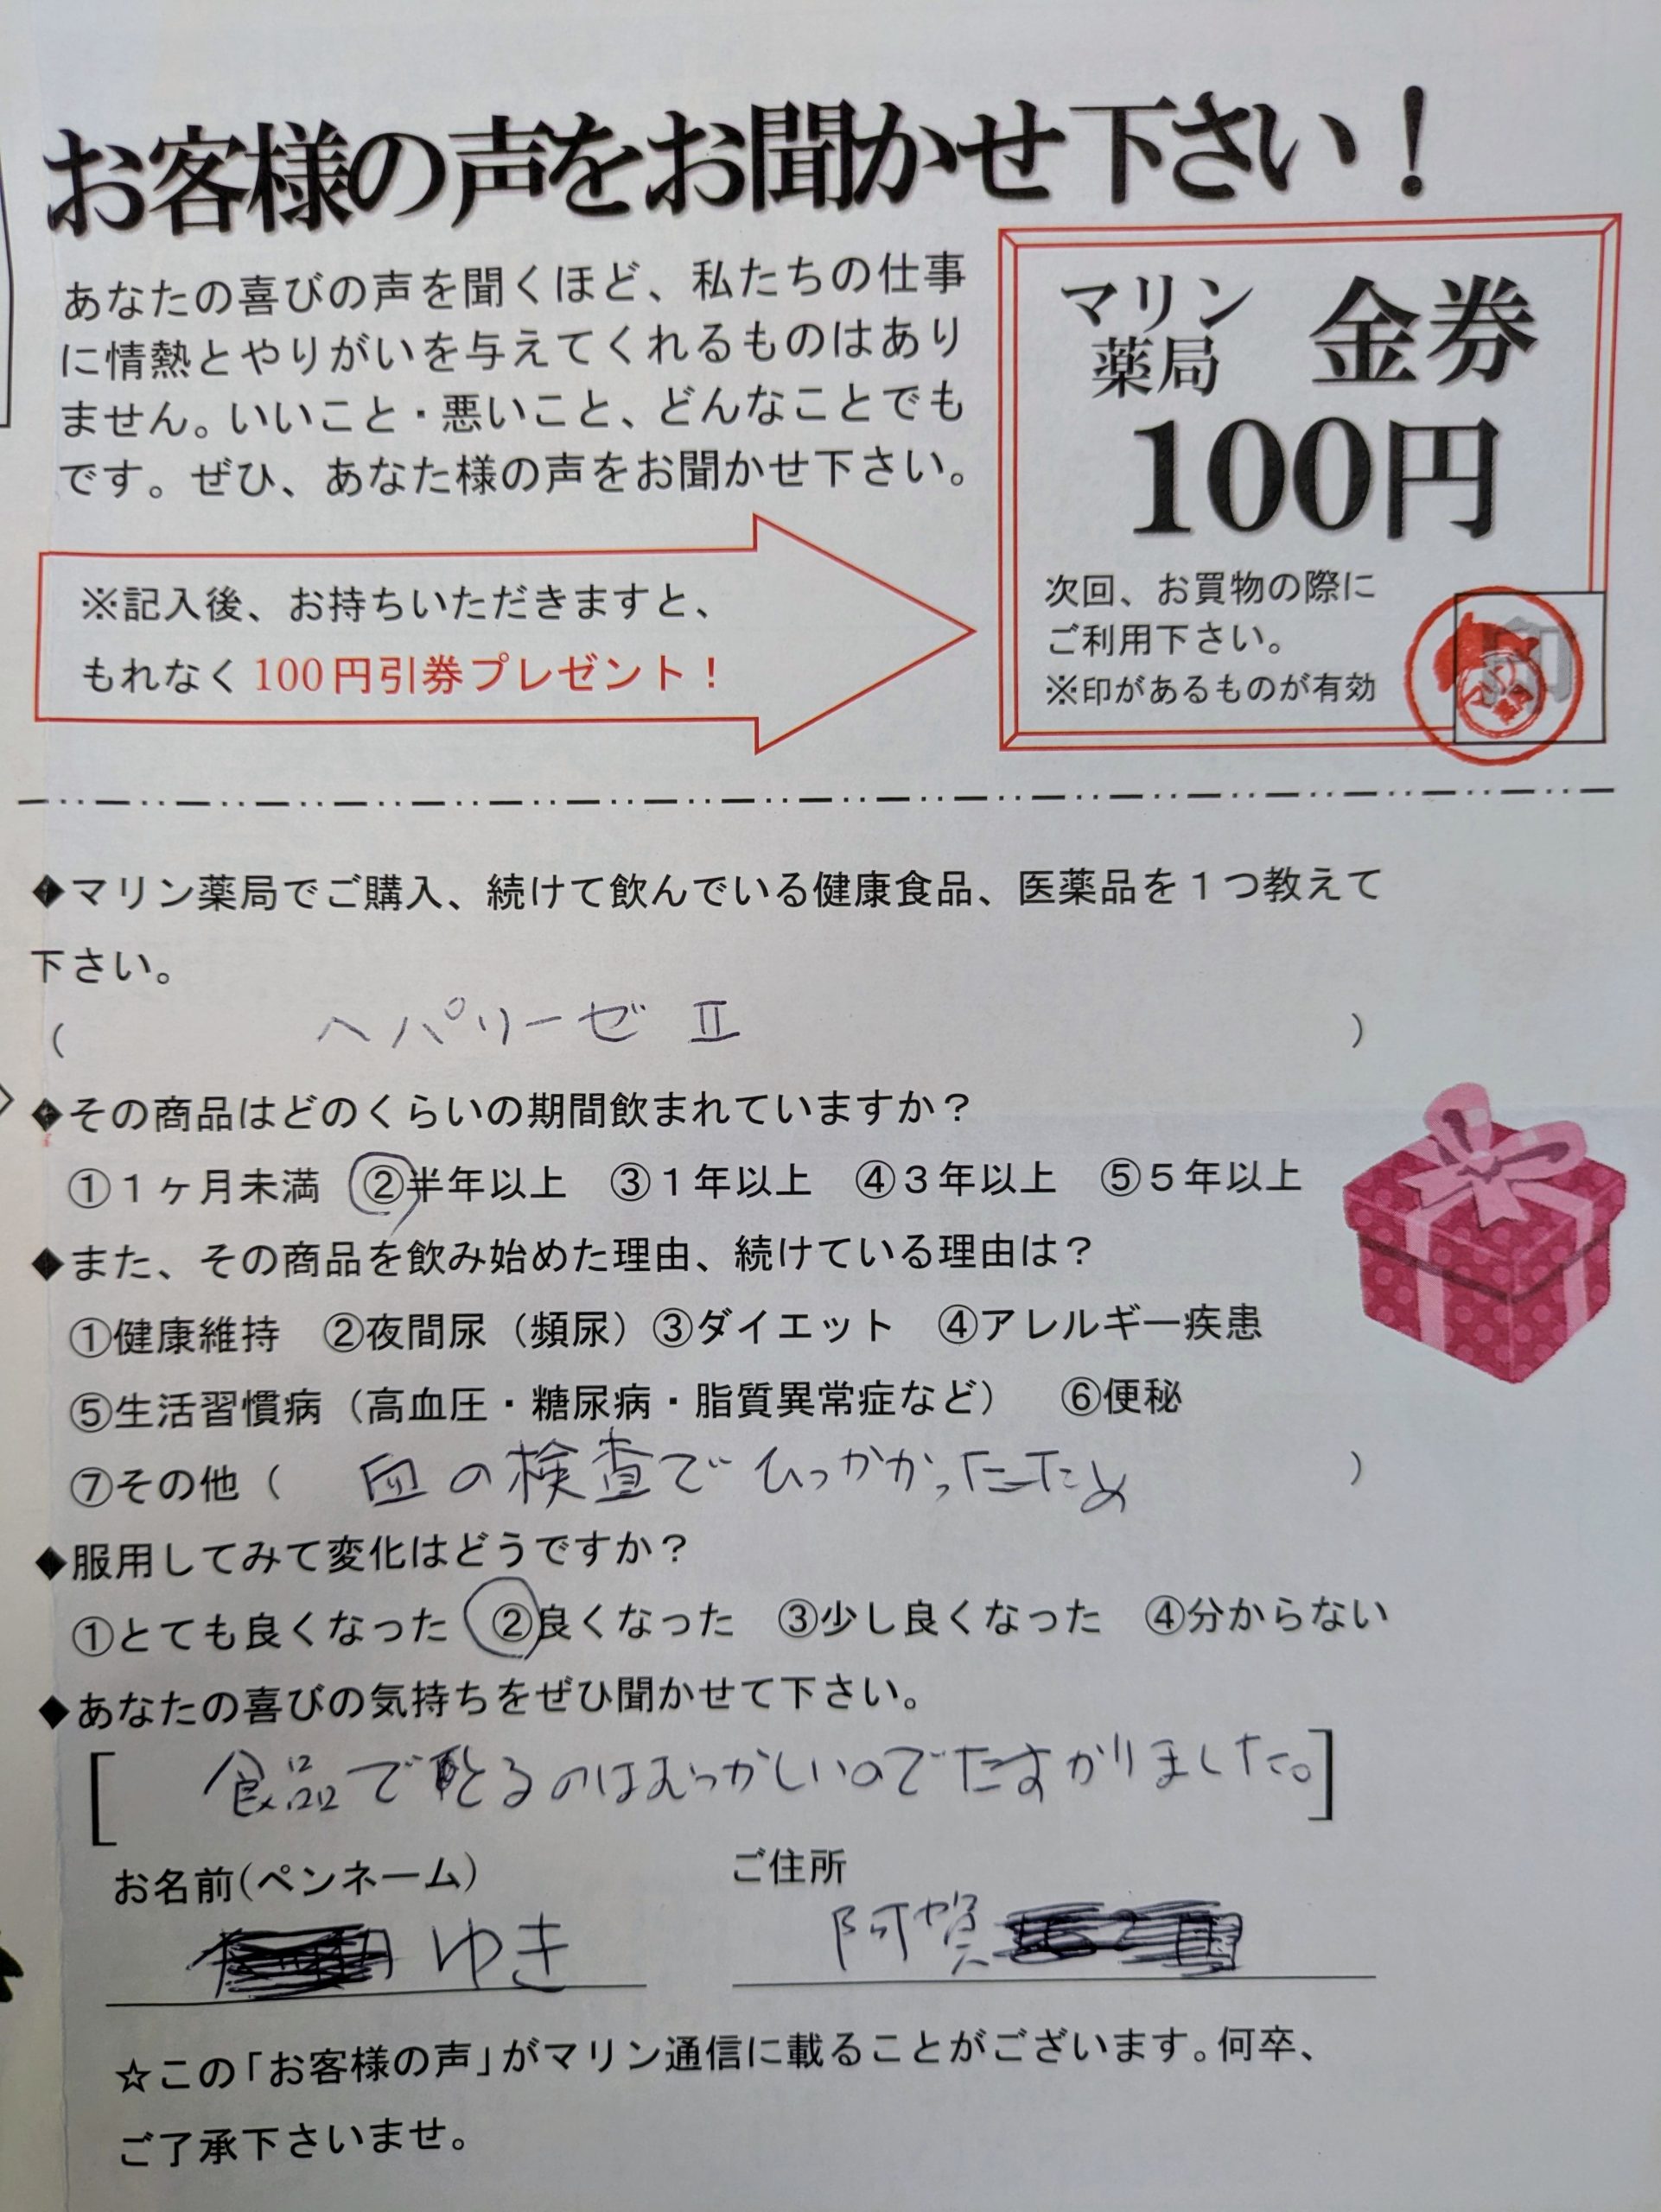 お客様の声をお聞かせ下さい！
あなたの喜びの声を聞くほど、私たちの仕事
に情熱とやりがいを与えてくれるものはあり
ません。いいこと・悪いこと、どんなことでも
です。ぜひ、あなた様の声をお聞かせ下さい。
※記入後、お持ちいただきますと、
もれなく100円引券プレゼント！
マリン
薬局
金券
100円
次回、お買物の際に
ご利用下さい。
※印があるものが有効
印
◆マリン薬局でご購入、続けて飲んでいる健康食品、医薬品を１つ教えて
下さい。
（ ヘパリーゼ Ⅱ ）
◆その商品はどのくらいの期間飲まれていますか？
①１ヶ月未満 ②半年以上 ③１年以上 ④３年以上 ⑤５年以上
◆また、その商品を飲み始めた理由、続けている理由は？
①健康維持 ②夜間尿（頻尿）③ダイエット ④アレルギー疾患
⑤生活習慣病（高血圧・糖尿病・脂質異常症など） ⑥便秘
⑦その他（ 血の検査でひっかかったため ）
◆服用してみて変化はどうですか？
①とても良くなった ②良くなった ③少し良くなった ④分からない
◆あなたの喜びの気持ちをぜひ聞かせて下さい。
[ 食品で取るのはむつかしいのでたすかりました。]
お名前(ペンネーム)
ゆき
ご住所
阿賀
☆この「お客様の声」がマリン通信に載ることがございます。何卒、
ご了承下さいませ。